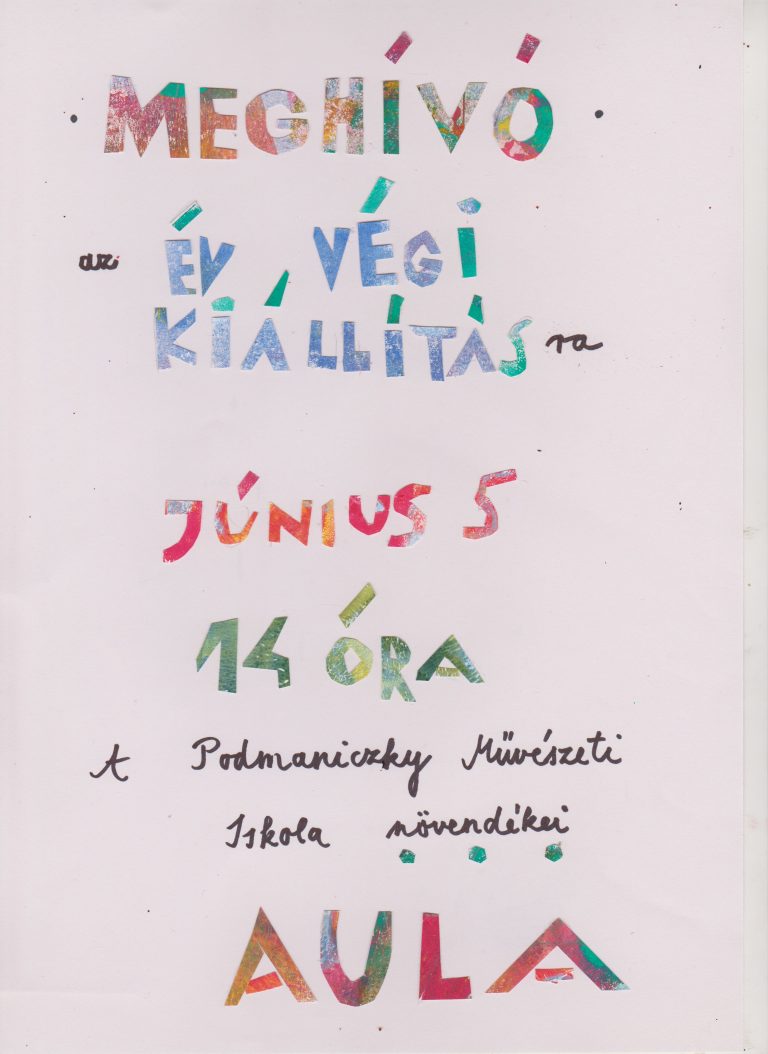 MEGHÍVÓ
az ÉV VÉGI
KIÁLLÍTÁSra
JÚNIUS 5
14 ÓRA
A Podmaniczky Művészeti
Iskola növendékei
AULA